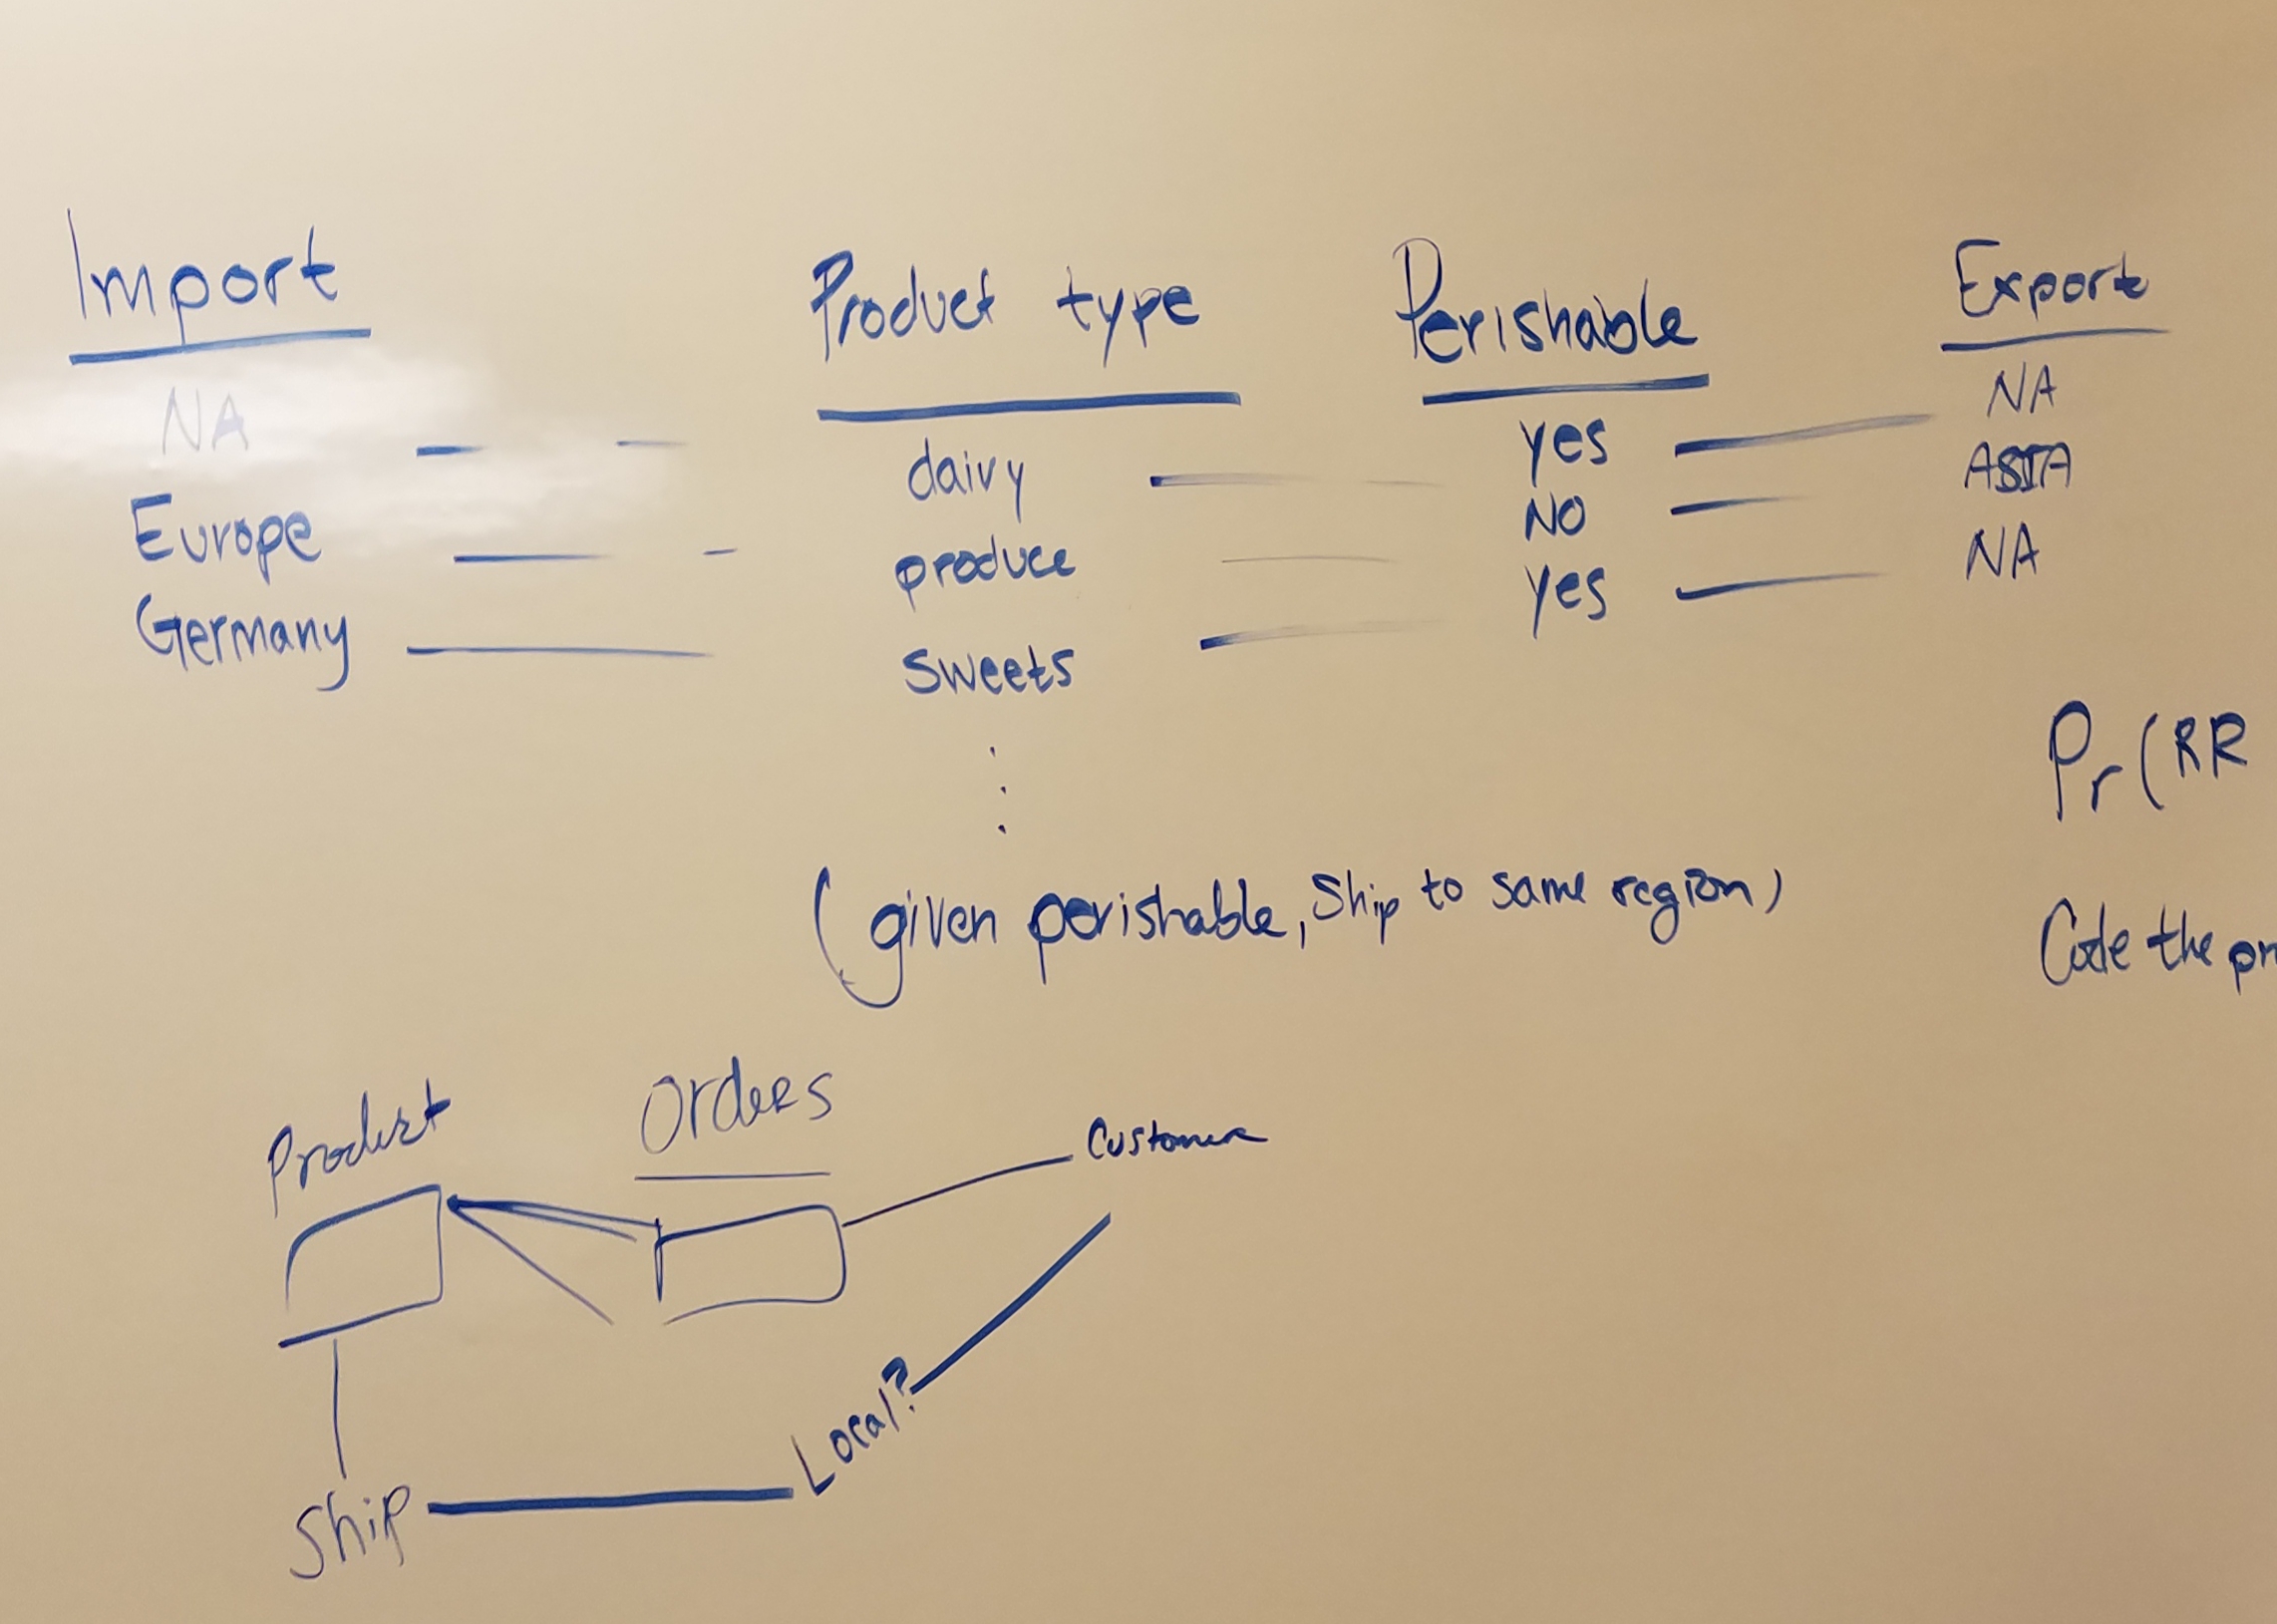 Import Product type Perishable Export
NA dairy yes NA
Europe produce NO ASIA
Germany sweets yes NA
Pr(RR
(given perishable, Ship to same region)
Code the pr
Product Orders Customer
Local?
Ship